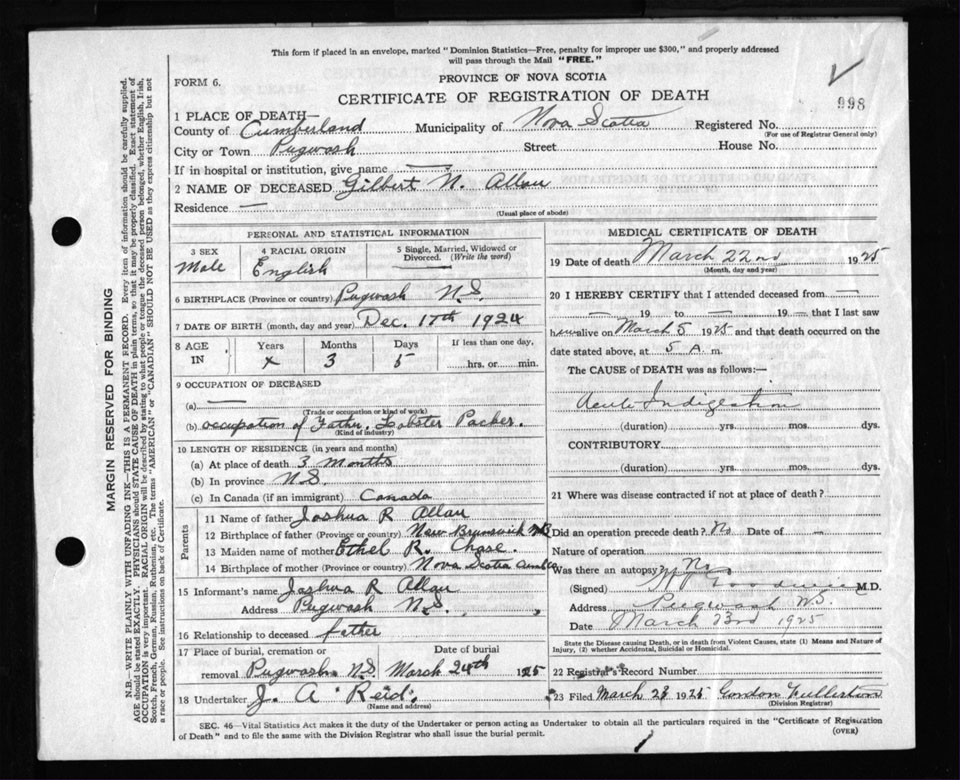 This form if placed in an envelope, marked "Dominion Statistics—Free, penalty for improper use $300," and properly addressed
will pass through the Mail "FREE."
FORM 6.
PROVINCE OF NOVA SCOTIA
CERTIFICATE OF REGISTRATION OF DEATH
998
1 PLACE OF DEATH—
County of Cumberland Municipality of Nova Scotia Registered No.
(For use of Registrar General only)
City or Town Pugwash Street House No.
If in hospital or institution, give name —
2 NAME OF DECEASED Gilbert N. Allan
Residence —
(Usual place of abode)
PERSONAL AND STATISTICAL INFORMATION
3 SEX 4 RACIAL ORIGIN 5 Single, Married, Widowed or Divorced. (Write the word)
Male English
6 BIRTHPLACE (Province or country) Pugwash N.S.
7 DATE OF BIRTH (month, day and year) Dec. 17th 1924
8 AGE IN Years Months Days If less than one day,
x 3 5 hrs. or min.
9 OCCUPATION OF DECEASED
(a) —
(Trade or occupation or kind of work)
(b) occupation of Father, Lobster Packer.
(Kind of industry)
10 LENGTH OF RESIDENCE (in years and months)
(a) At place of death 3 months
(b) In province N.S.
(c) In Canada (if an immigrant) Canada
Parents
11 Name of father Joshua R Allan
12 Birthplace of father (Province or country) New Brunswick NB
13 Maiden name of mother Ethel R. Chase.
14 Birthplace of mother (Province or country) Nova Scotia
15 Informant's name Joshua R Allan
Address Pugwash N.S.
16 Relationship to deceased father
17 Place of burial, cremation or removal Date of burial
Pugwash N.S. March 24th 1925
18 Undertaker J. A Reid
(Name and address)
MEDICAL CERTIFICATE OF DEATH
19 Date of death March 22nd 1925
(Month, day and year)
20 I HEREBY CERTIFY that I attended deceased from —
— 19 to — 19 — that I last saw
him alive on March 5 1925 and that death occurred on the
date stated above, at 5 A m.
The CAUSE OF DEATH was as follows:—
Acute Indigestion
(duration) yrs. mos. dys.
CONTRIBUTORY
(duration) yrs. mos. dys.
21 Where was disease contracted if not at place of death?
Did an operation precede death? No Date of —
Nature of operation
Was there an autopsy? No
(Signed) M.D.
Address Pugwash N.S.
Date March 23rd 1925
State the Disease causing Death, or in death from Violent Causes, state (1) Means and Nature of
Injury, (2) whether Accidental, Suicidal or Homicidal.
22 Registrar's Record Number
23 Filed March 1925 Gordon Fullerton
(Division Registrar)
SEC. 46—Vital Statistics Act makes it the duty of the Undertaker or person acting as Undertaker to obtain all the particulars required in the "Certificate of Registration
of Death" and to file the same with the Division Registrar who shall issue the burial permit.
(OVER)
MARGIN RESERVED FOR BINDING
N.B.—WRITE PLAINLY WITH UNFADING INK—THIS IS A PERMANENT RECORD. Every item of information should be carefully supplied.
AGE should be stated EXACTLY. PHYSICIANS should STATE CAUSE OF DEATH in plain terms, so that it may be properly classified. Exact statement of
OCCUPATION is very important. RACIAL ORIGIN will be described by stating to what people or tongue the deceased person belonged, whether English, Irish,
Scotch, French, German, Russian, Ruthenian, etc. The terms "AMERICAN" or "CANADIAN" SHOULD NOT BE USED as they express citizenship but not
a race or people. See instructions on back of Certificate.